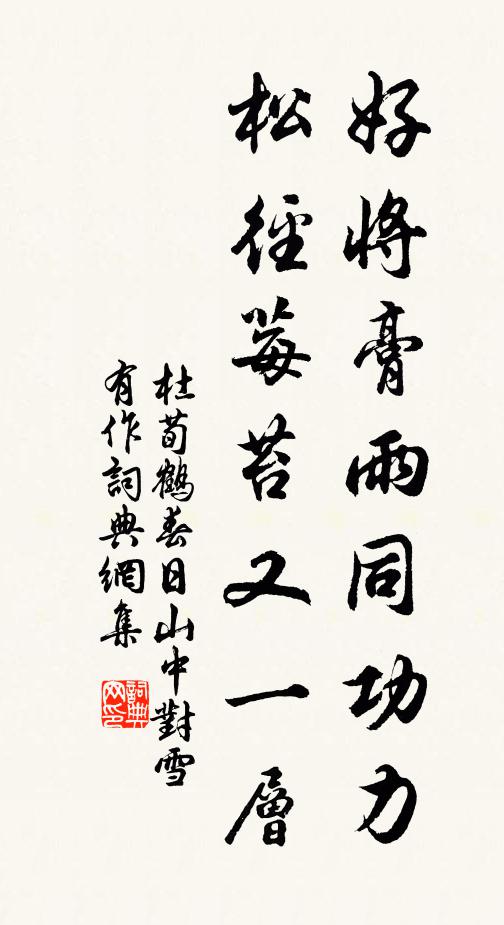 好將膏雨同功力
松徑莓苔又一層
杜荀鶴春日山中對雪
有作詞典網集
詞典
网印